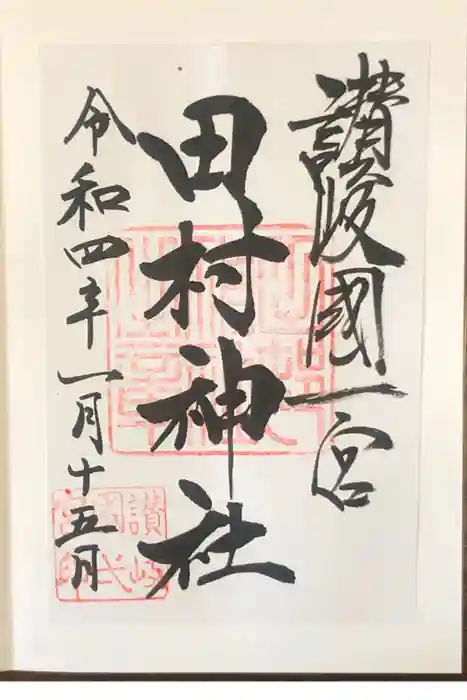 讃岐國一宮
田村神社
令和四年一月十五日
讃岐